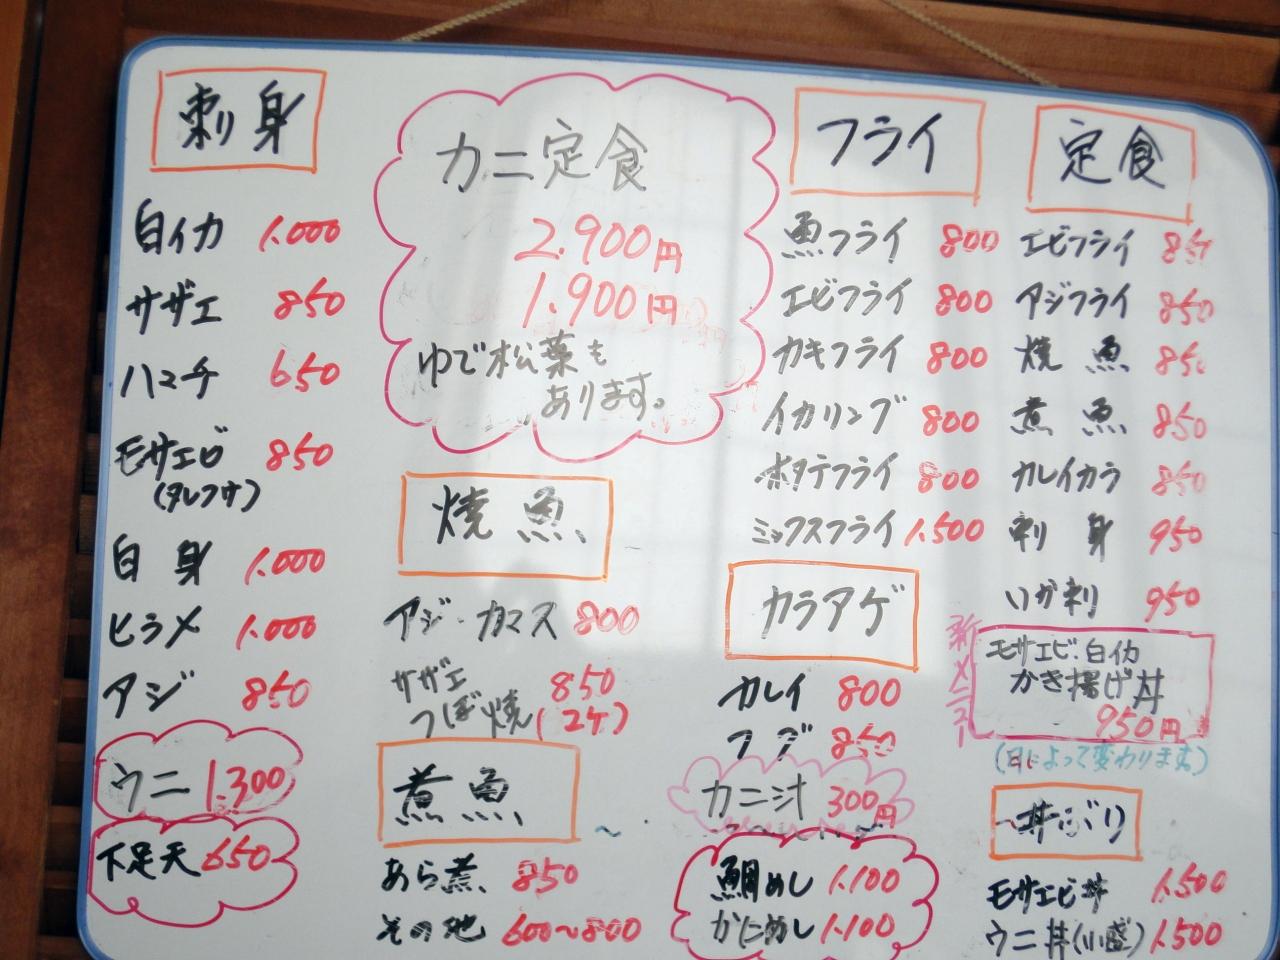 刺身
白イカ 1.000
サザエ 850
ハマチ 650
モサエビ 850
(タレフサ)
白身 1.000
ヒラメ 1.000
アジ 850
ウニ 1.300
下足天 650
カニ定食
2.900円
1.900円
ゆで松葉も
あります。
焼魚
アジ・カマス 800
サザエ
つぼ焼 850
(2ケ)
煮魚
あら煮 850
その他 600〜800
フライ
魚フライ 800
エビフライ 800
カキフライ 800
イカリング 800
ホタテフライ 800
ミックスフライ 1.500
カラアゲ
カレイ 800
フグ 850
カニ汁 300円
鯛めし 1.100
かにめし 1.100
定食
エビフライ 850
アジフライ 850
焼魚 850
煮魚 850
カレイカラ 850
刺身 950
いか刺 950
新メニュー
モサエビ・白イカ
かき揚げ丼
950円
(日によって変わります。)
丼ぶり
モサエビ丼 1.500
ウニ丼(小盛) 1.500